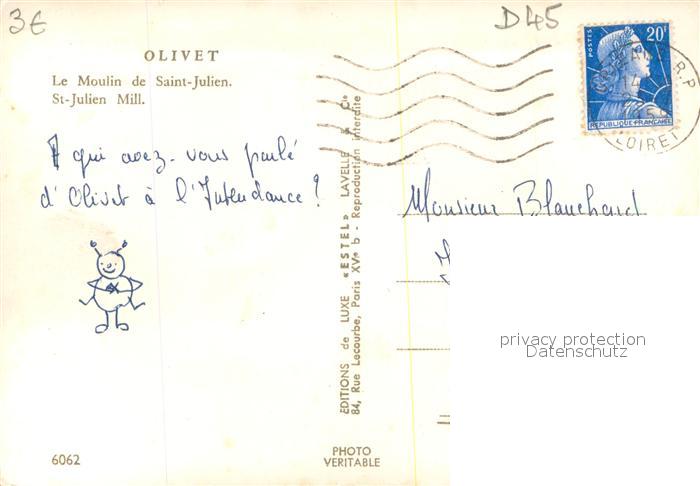 3€
D45
OLIVET
Le Moulin de Saint-Julien.
St-Julien Mill.
A qui avez-vous parlé
d'Olivet à l'Intendance ?
6062
EDITIONS de LUXE «ESTEL» LAVELLE & Cie
84, Rue Lecourbe, Paris XVe b - Reproduction interdite
PHOTO
VERITABLE
POSTES
20F
REPUBLIQUE FRANCAISE
R.P
LOIRET
Monsieur Blanchard
privacy protection
Datenschutz